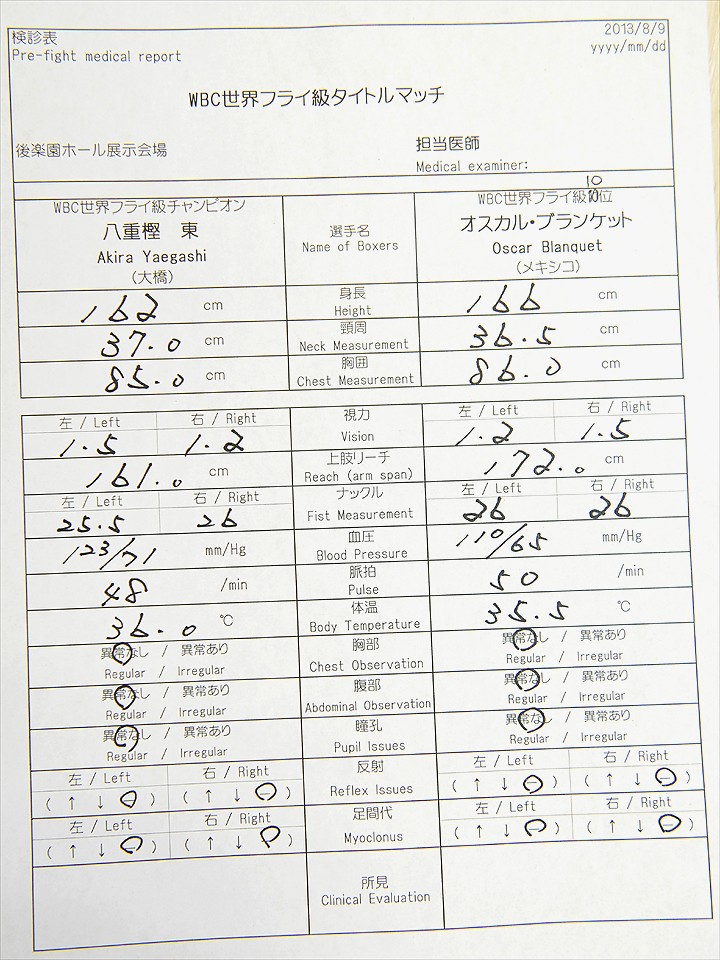 検診表
Pre-fight medical report
2013/8/9
yyyy/mm/dd
WBC世界フライ級タイトルマッチ
後楽園ホール展示会場
担当医師
Medical examiner:
WBC世界フライ級チャンピオン
八重樫 東
Akira Yaegashi
(大橋)
選手名
Name of Boxers
10
WBC世界フライ級10位
オスカル・ブランケット
Oscar Blanquet
(メキシコ)
162 cm 身長 Height 166 cm
37.0 cm 頸周 Neck Measurement 36.5 cm
85.0 cm 胸囲 Chest Measurement 86.0 cm
左 / Left 右 / Right 視力 左 / Left 右 / Right
1.5 1.2 Vision 1.2 1.5
161.0 cm 上肢リーチ Reach (arm span) 172.0 cm
左 / Left 右 / Right ナックル 左 / Left 右 / Right
25.5 26 Fist Measurement 26 26
123/71 mm/Hg 血圧 Blood Pressure 110/65 mm/Hg
48 /min 脈拍 Pulse 50 /min
36.0 ℃ 体温 Body Temperature 35.5 ℃
異常なし / 異常あり 胸部 異常なし / 異常あり
Regular / Irregular Chest Observation Regular / Irregular
異常なし / 異常あり 腹部 異常なし / 異常あり
Regular / Irregular Abdominal Observation Regular / Irregular
異常なし / 異常あり 瞳孔 異常なし / 異常あり
Regular / Irregular Pupil Issues Regular / Irregular
左 / Left 右 / Right 反射 左 / Left 右 / Right
( ↑ ↓ - ) ( ↑ ↓ - ) Reflex Issues ( ↑ ↓ - ) ( ↑ ↓ - )
左 / Left 右 / Right 足間代 左 / Left 右 / Right
( ↑ ↓ - ) ( ↑ ↓ - ) Myoclonus ( ↑ ↓ - ) ( ↑ ↓ - )
所見
Clinical Evaluation